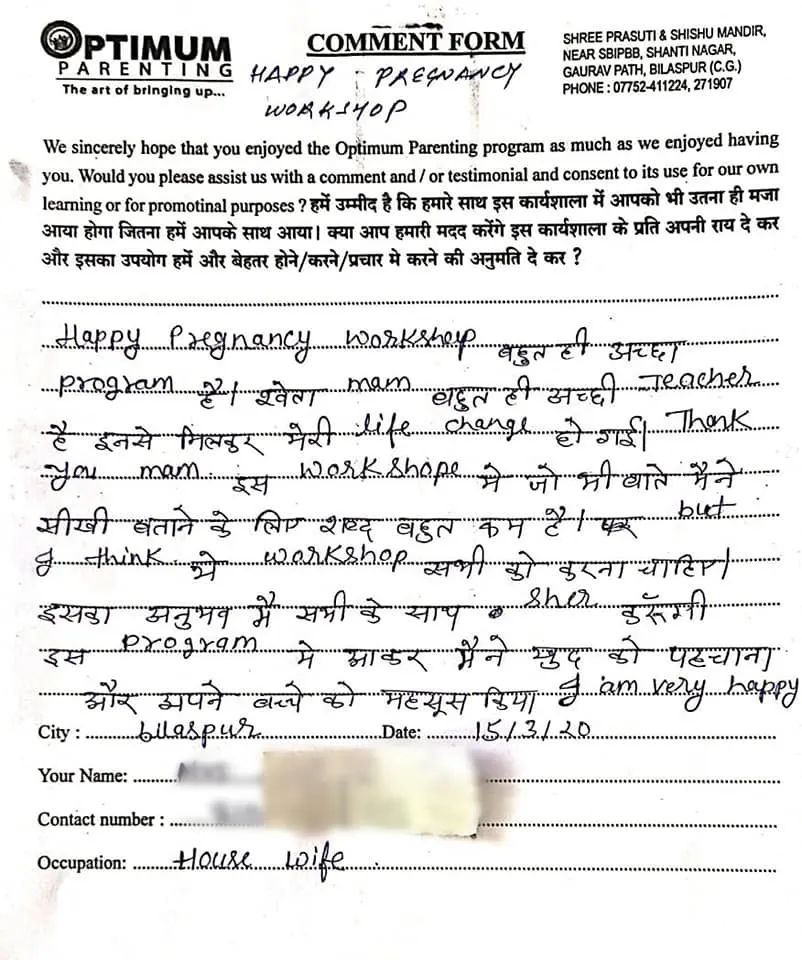 OPTIMUM
PARENTING
The art of bringing up...
COMMENT FORM
HAPPY - PREGNANCY
WORKSHOP
SHREE PRASUTI & SHISHU MANDIR,
NEAR SBIPBB, SHANTI NAGAR,
GAURAV PATH, BILASPUR (C.G.)
PHONE : 07752-411224, 271907
We sincerely hope that you enjoyed the Optimum Parenting program as much as we enjoyed having
you. Would you please assist us with a comment and / or testimonial and consent to its use for our own
learning or for promotinal purposes ? हमें उम्मीद है कि हमारे साथ इस कार्यशाला में आपको भी उतना ही मजा
आया होगा जितना हमें आपके साथ आया। क्या आप हमारी मदद करेंगे इस कार्यशाला के प्रति अपनी राय दे कर
और इसका उपयोग हमें और बेहतर होने/करने/प्रचार मे करने की अनुमति दे कर ?
Happy Pregnancy workshop बहुत ही अच्छा
program है। श्वेता mam बहुत ही अच्छी Teacher
है इनसे मिलकर मेरी life change हो गई। Thank
you mam. इस workshope मे जो भी बाते मैने
सीखी बताने के लिए शब्द बहुत कम है। but
I think ये workshop सभी को करना चाहिए।
इसका अनुभव मैं सभी के साथ sher करूँगी
इस program मे आकर मैने खुद को पहचाना
और अपने बच्चे को महसूस किया I am very happy
City : bilaspur Date: 15/3/20
Your Name:
Contact number :
Occupation: House wife